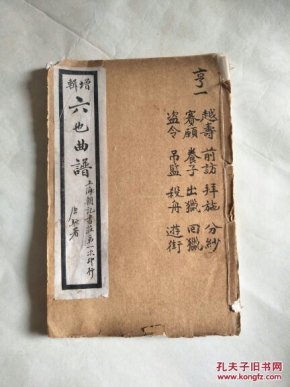 亨一
越壽 前訪 拜施 分紗
賽願 養子 出獵 回獵
盗令 吊監 殺舟 遊街
增輯
六也曲譜
上海朝記書莊第一次印行
孔夫子旧书网